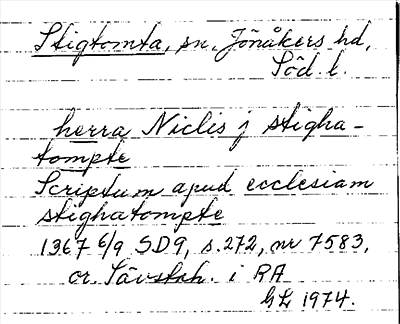 Stigtomta, sn. Jönåkers hd,
Söd. l.
herra Niclis j stigha-
tompte
Scriptum apud ecclesiam
stighatompte
1367 6/9 SD9, s. 272, nr 7583,
or. i RA
1974.